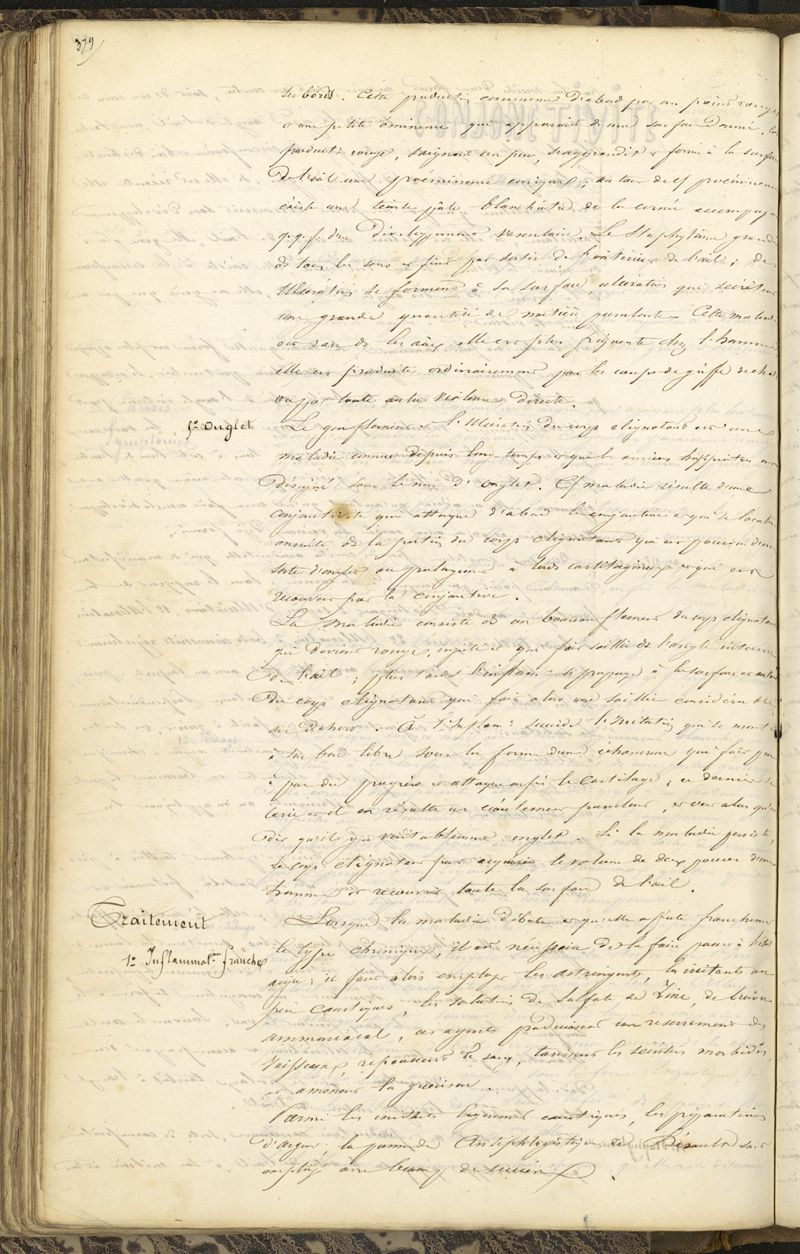 379
ses bords. Cette production commence d'abord par un point rouge
et une petite éminence qui apparait à une surface donnée, la
produit rouge, saignant un peu, s'aggrandit et forme à la surface
de l'œil une proéminence conique; autour de cette proéminence
existe une teinte pâle blanchâtre de la cornée accompagné
qq. f. d'un développement vasculaire. Le Staphylôme grandit
ds tous les sens et finit par sortir de l'intérieur de l'œil; des
Ulcérations se forment à sa surface ulcération qui secrètent
une grande quantité de matière purulente. Cette maladie
est rare ds les aux elle est plus fréquente chez l'homme
elle est produite ordinairement par les coups de griffe de chat
ou par toute autre violence directe.
5° Onglet
Le gonflement et l'Ulcération du corps clignotant est une
maladie connue depuis longtemps et que les anciens hippiatres ont
désigné sous le nom d'onglet. Cette maladie résulte d'une
conjonctivite qui attaque d'abord la conjonctive et qui se localise
ensuite ds la partie du corps clignotant qui est pourvu d'une
sorte d' ou prolongement à bords cartilagineux et qui est
recouvert par la conjonctive.
La maladie consiste ds un boursouflement du corps clignotant
qui devient rouge, injecté et qui fait saillie ds l'angle interne
de l'œil; plus tard l'inflamm: se propage à la surface
du corps clignotant qui fait alors une saillie considérable
au dehors. A l'inflam: succède l'ulcération qui se montre
à son bord libre sous la forme d'une échancrure qui fait peu
à peu des progrès et attaque enfin le cartilage; ce dernier se
carie et il en résulte un écoulement purulent, et c'est alors qu'on
dit qu'il y a véritablement onglet. Si la maladie persiste,
le corps clignotant peut acquérir le volume de deux pouces d'un
homme et recouvrir toute la surface de l'œil.
Traitement
1° Inflammat.on franche
Lorsque la maladie débute et qu'elle affecte franchement
le type chronique, il est nécessaire de la faire passer à l'état
aigu: il faut alors employer les astringents, les irritants un
peu caustiques, les solutions de Sulfate de Zinc, de cuivre
ammoniacal, ces agents produisent un resserrement des
vaisseaux, repoussent le sang, tarissent les sécrétions morbides,
et amènent la guérison.
Parmi les irritants légèrement caustiques, les préparations
d'argent, la pommade Antiphlogistique de Desault sont
employés avec beaucoup de succès